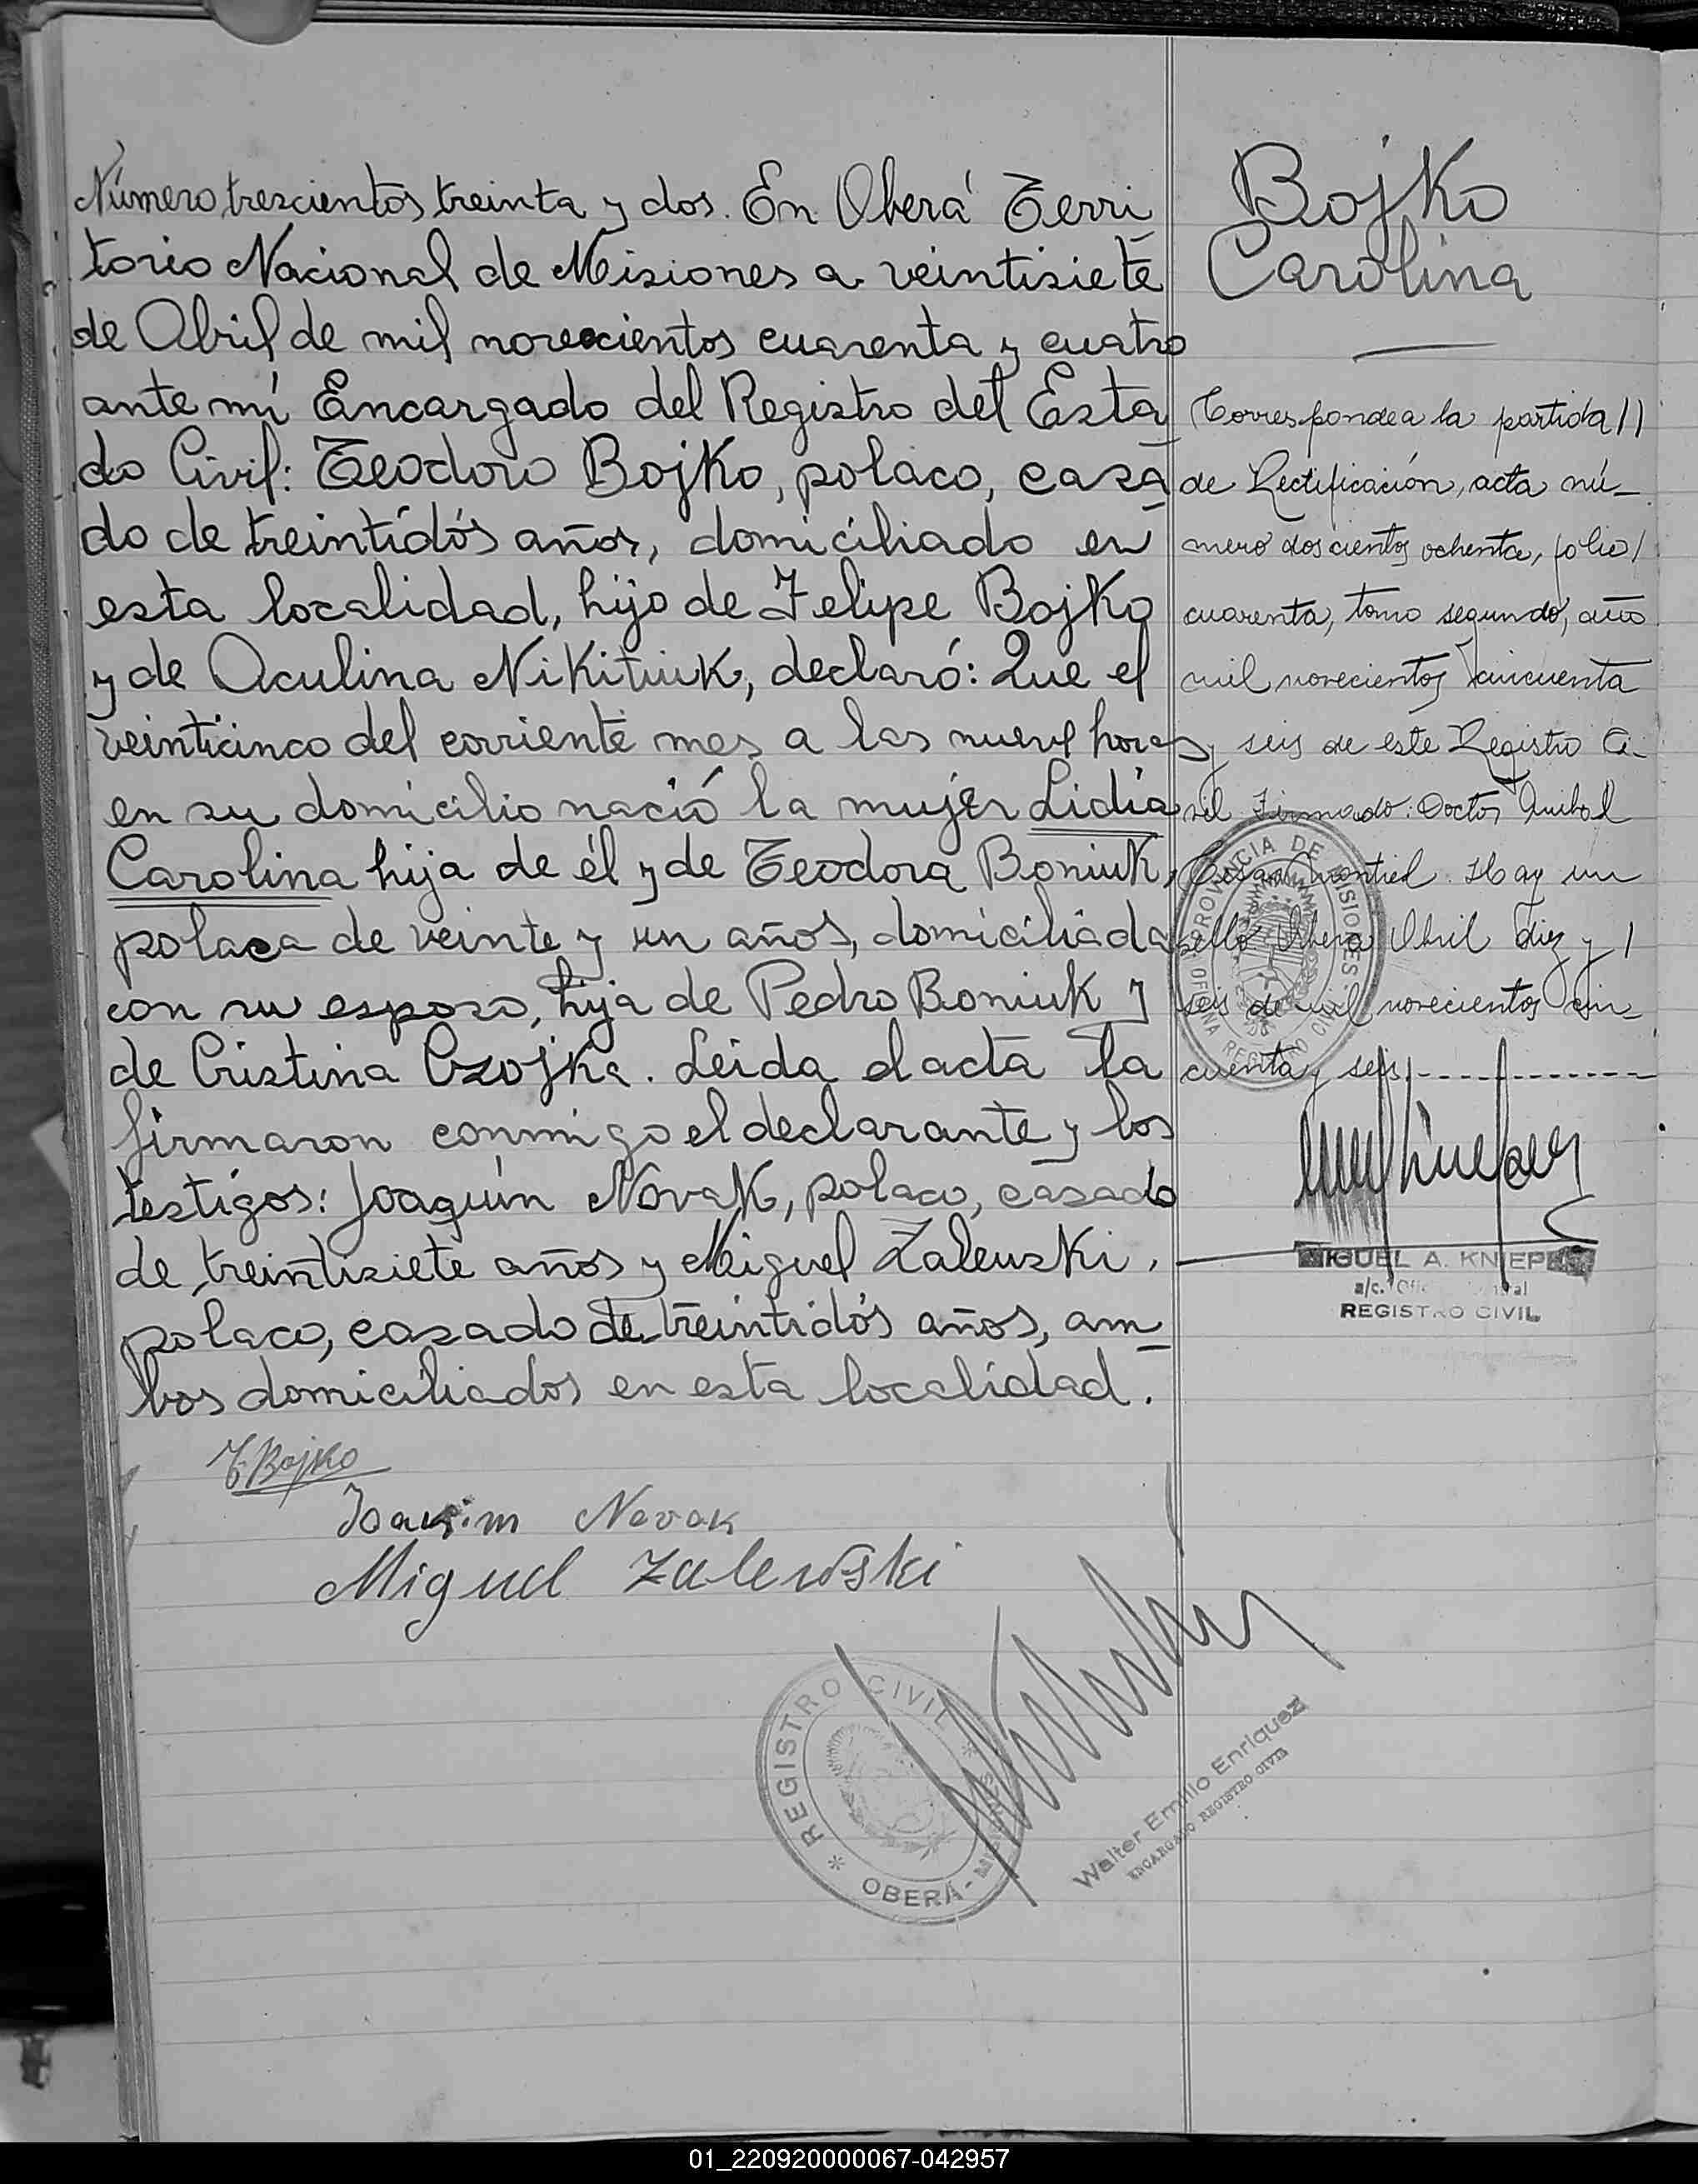 Número trescientos treinta y dos. En Oberá Terri
torio Nacional de Misiones a veintisiete
de Abril de mil novecientos cuarenta y cuatro
ante mí Encargado del Registro del Esta
do Civil: Teodoro Bojko, polaco, casa
do de treintidós años, domiciliado en
esta localidad, hijo de Felipe Bojko
y de Aculina Nikitiuk, declaró: Que el
veinticinco del corriente mes a las nueve horas
en su domicilio nació la mujer Lidia
Carolina hija de él y de Teodora Boniuk,
polaca de veinte y un años, domiciliada
con su esposo, hija de Pedro Boniuk y
de Cristina Czojka. Leida el acta la
firmaron conmigo el declarante y los
testigos: Joaquín Novak, polaco, casado
de treintisiete años y Miguel Zaleuski,
polaco, casado de treintidós años, am
bos domiciliados en esta localidad.
T. Bojko
Joakim Novak
Miguel Zalewski
REGISTRO CIVIL
OBERÁ - MISIONES
Walter Emilio Enriquez
ENCARGADO REGISTRO CIVIL
Bojko
Carolina
Corresponde a la partida //
de Rectificación, acta nú-
mero doscientos ochenta, folio /
cuarenta, tomo segundo, año
mil novecientos cincuenta
y seis de este Registro Ci-
vil. Firmado: Doctor Anibal
Montiel. Hay un
sello Oberá Abril diez y /
seis de mil novecientos cin-
cuenta y seis.
PROVINCIA DE MISIONES
OFICINA REGISTRO CIVIL
MIGUEL A. KNIEP
a/c.
REGISTRO CIVIL
01_220920000067-042957